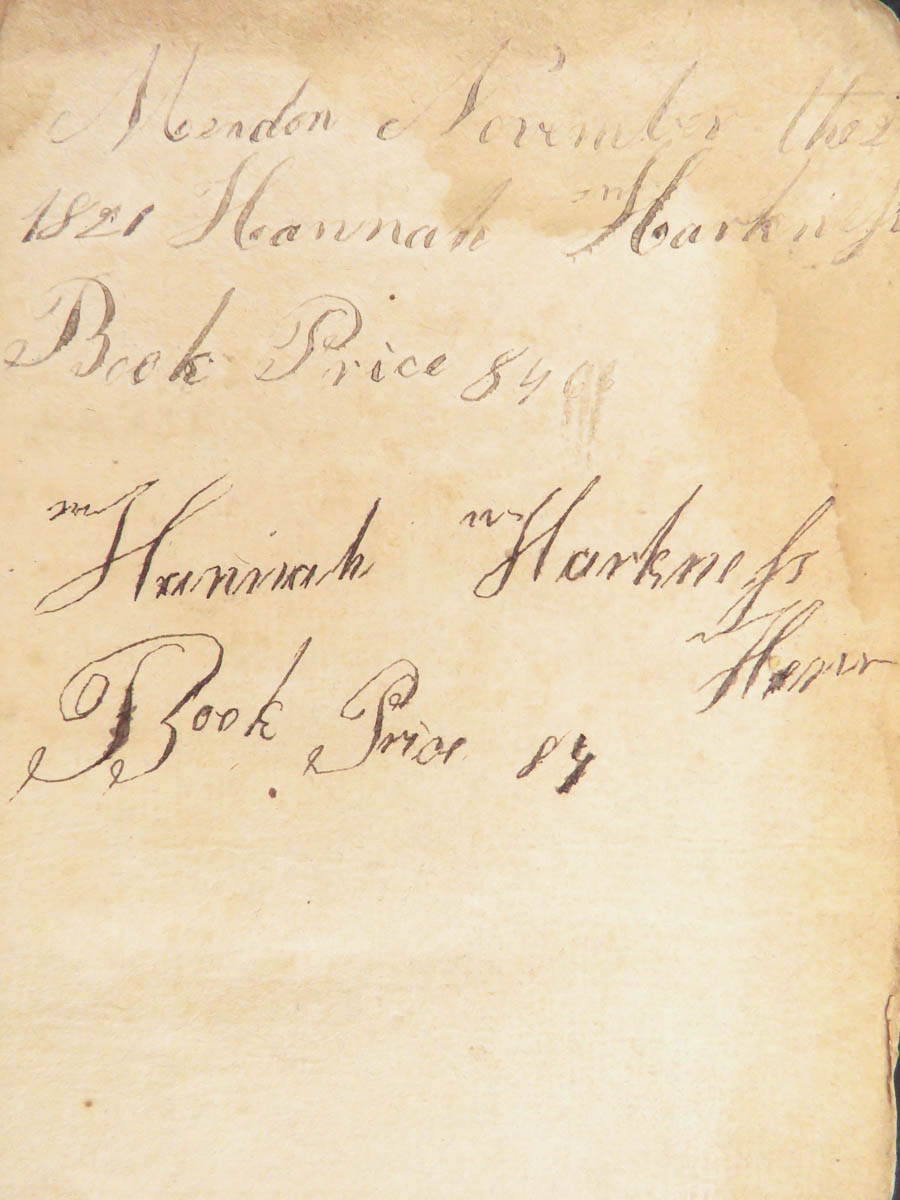 Mendon November the 2
1821 Hannah Harkness
Book Price 84
Hannah Harkness
Her
Book Price 84